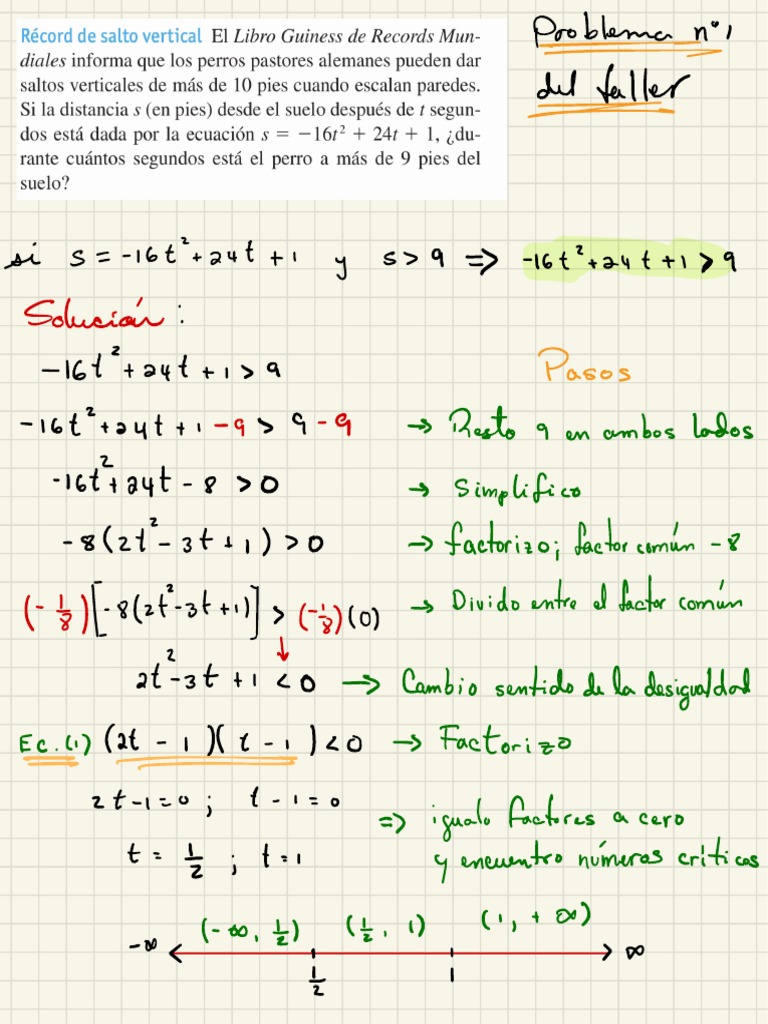 Récord de salto vertical El Libro Guiness de Records Mun-
diales informa que los perros pastores alemanes pueden dar
saltos verticales de más de 10 pies cuando escalan paredes.
Si la distancia s (en pies) desde el suelo después de t segun-
dos está dada por la ecuación s = −16t² + 24t + 1, ¿du-
rante cuántos segundos está el perro a más de 9 pies del
suelo?
Problema n°1
del taller
si s = -16t² + 24t + 1 y s > 9 => -16t² + 24t + 1 > 9
Solución:
-16t² + 24t + 1 > 9 Pasos
-16t² + 24t + 1 - 9 > 9 - 9 → Resto 9 en ambos lados
-16t² + 24t - 8 > 0 → Simplifico
-8(2t² - 3t + 1) > 0 → factorizo; factor común -8
(-1/8)[-8(2t² - 3t + 1)] > (-1/8)(0) → Divido entre el factor común
↓
2t² - 3t + 1 < 0 → Cambio sentido de la desigualdad
Ec. (1) (2t - 1)(t - 1) < 0 → Factorizo
2t - 1 = 0 ; t - 1 = 0 => igualo factores a cero
t = 1/2 ; t = 1 y encuentro números críticos
(-∞, 1/2) (1/2, 1) (1, +∞)
-∞ ∞
1/2 1